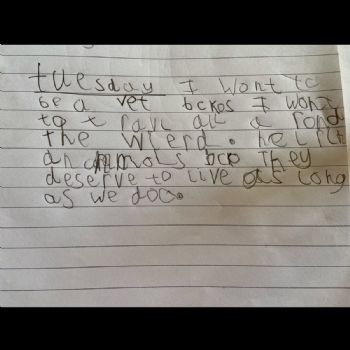 tuesday I wont to
be a vet bckos I wont
to t ravl all a rond
the wlerd. helfin
an anmols bcp they
deserve to live as long
as we doo.